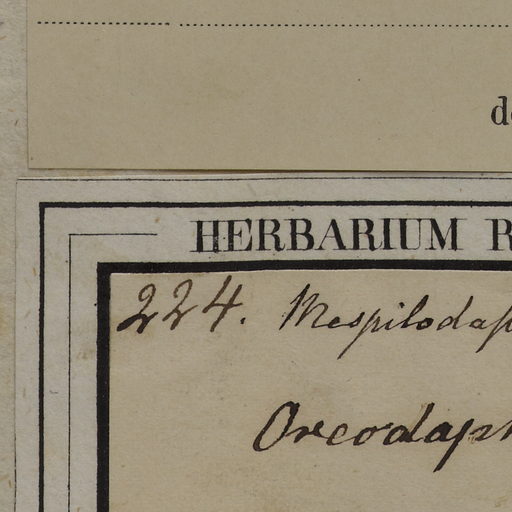 de
HERBARIUM R
224. Mespilodaph
Oreodaph